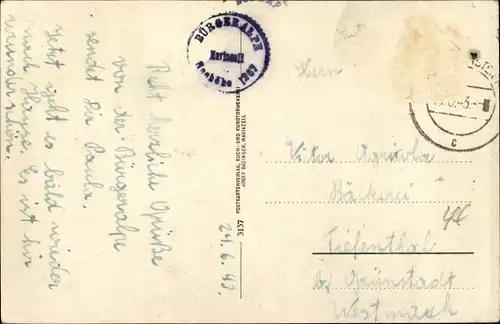 BÜRGERALPE
Mariazell
Seehöhe 1267
Herrn
Viktor
Bäckerei
Tiefenthal
bei Grünstadt
Westmark
24.6.43.
Recht herzliche Grüße
von der Bürgeralpe
sendet Dir Paula.
Jetzt geht es bald wieder
nach Hause. Es ist hier
wunderschön.
3137
POSTKARTENVERLAG, BUCH- UND KUNSTDRUCKEREI
JOSEF RADINGER, MARIAZELL
c